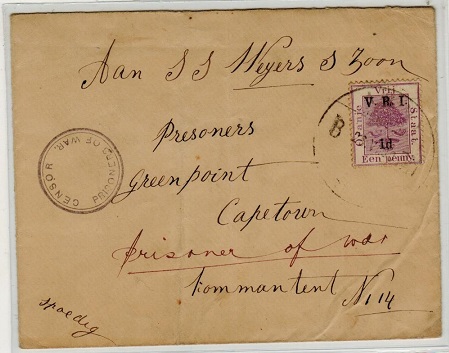 Aan S S Weyers S Zoon
Presoners
Greenpoint
Capetown
prisoner of war
Kommantent
No 14
spoedig
PRISONERS OF WAR
CENSOR
Vrij
Oranje
Staat.
V. R. I.
1d
Een penny.
B